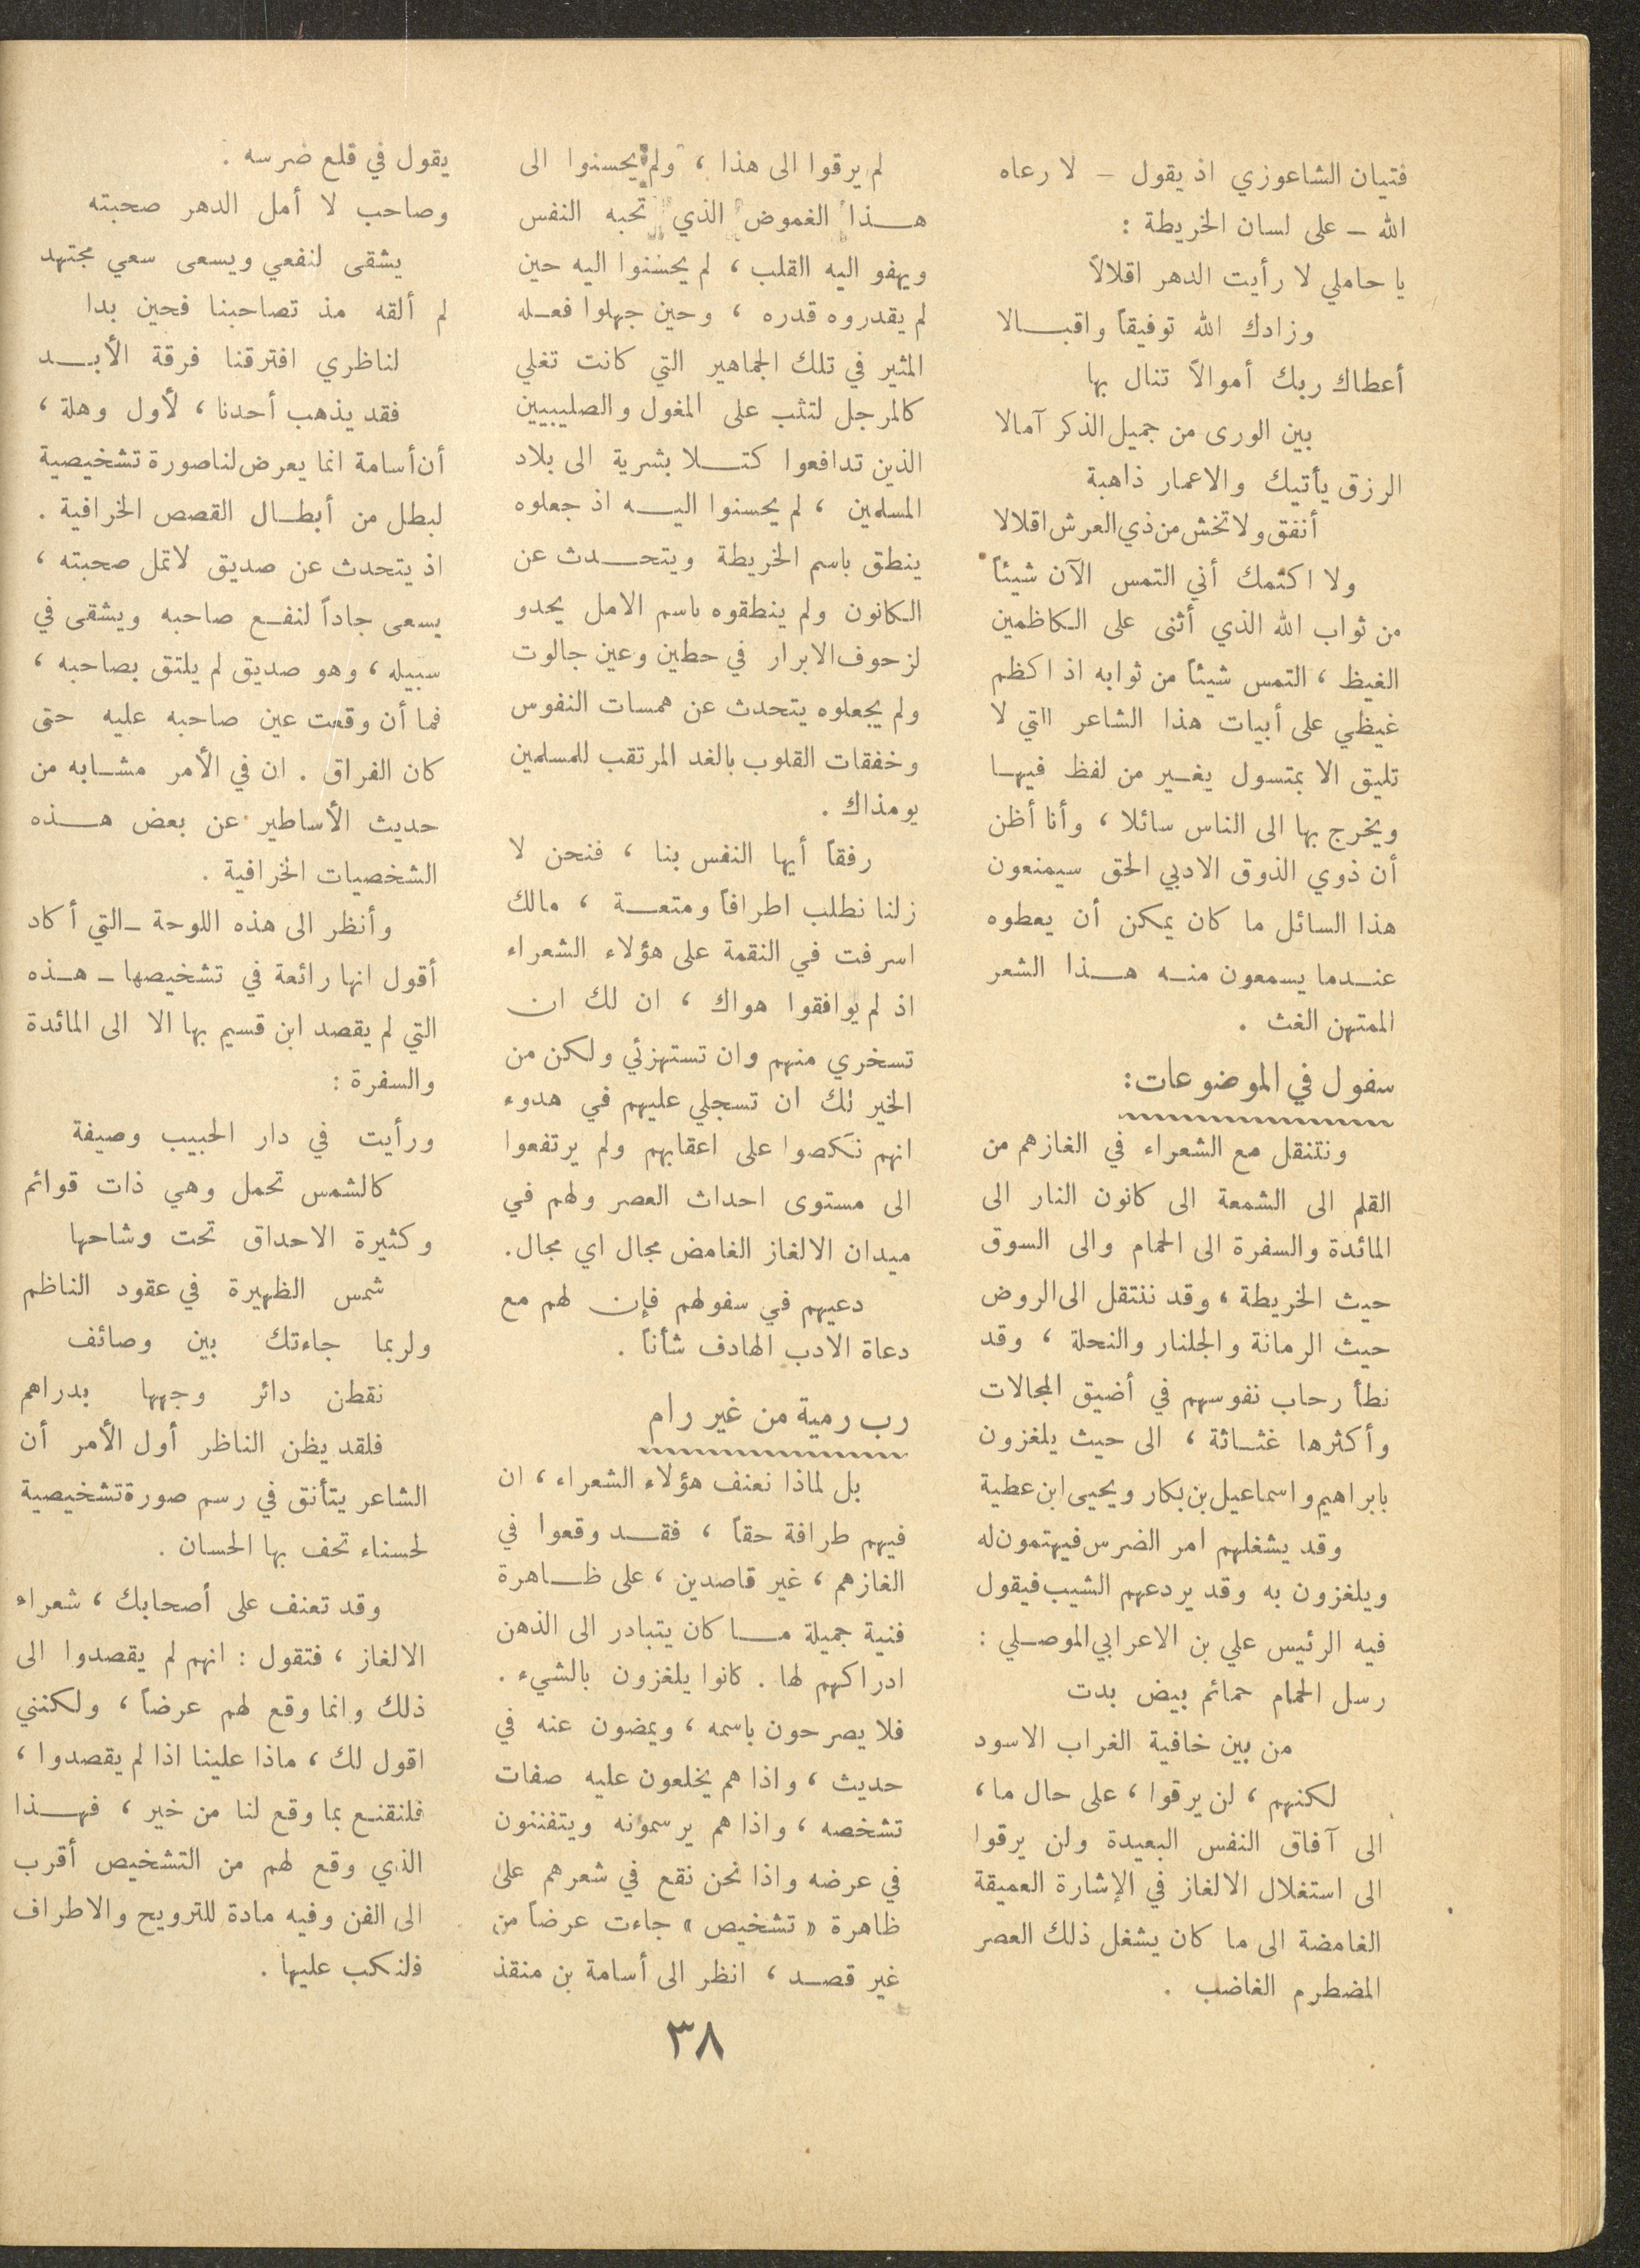 فتيان الشاعوزي اذ يقول – لا رعاه
الله – على لسان الخريطة :
يا حاملي لا رأيت الدهر اقلالاً
وزادك الله توفيقاً واقبالا
أعطاك ربك أموالاً تنال بها
بين الورى من جميل الذكر آمالا
الرزق يأتيك والاعمار ذاهبة
أنفق ولا تخش من ذي العرش اقلالا
ولا اكتمك أني التمس الآن شيئاً
من ثواب الله الذي أثنى على الكاظمين
الغيظ ، التمس شيئاً من ثوابه اذ اكظم
غيظي على أبيات هذا الشاعر التي لا
تليق الا بمتسول يغير من لفظ فيها
ويخرج بها الى الناس سائلا ، وأنا أظن
أن ذوي الذوق الادبي الحق سيمنعون
هذا السائل ما كان يمكن أن يعطوه
عندما يسمعون منه هذا الشعر
الممتهن الغث .
سفول في الموضوعات:
ونتنقل مع الشعراء في الغازهم من
القلم الى الشمعة الى كانون النار الى
المائدة والسفرة الى الحمام والى السوق
حيث الخريطة ، وقد ننتقل الى الروض
حيث الرمانة والجلنار والنحلة ، وقد
نطأ رحاب نفوسهم في أضيق المجالات
وأكثرها غثاثة ، الى حيث يلغزون
بابراهيم واسماعيل بن بكار ويحيى ابن عطية
وقد يشغلهم امر الضرس فيهتمون له
ويلغزون به وقد يردعهم الشيب فيقول
فيه الرئيس علي بن الاعرابي الموصلي :
رسل الحمام حمائم بيض بدت
من بين خافية الغراب الاسود
لكنهم ، لن يرقوا ، على حال ما ،
الى آفاق النفس البعيدة ولن يرقوا
الى استغلال الالغاز في الإشارة العميقة
الغامضة الى ما كان يشغل ذلك العصر
المضطرم الغاضب .
لم يرقوا الى هذا ، ولم يحسنوا الى
هذا الغموض الذي تحبه النفس
ويهفو اليه القلب ، لم يحسنوا اليه حين
لم يقدروه قدره ، وحين جهلوا فعله
المثير في تلك الجماهير التي كانت تغلي
كالمرجل لتثب على المغول والصليبيين
الذين تدافعوا كتلا بشرية الى بلاد
المسلمين ، لم يحسنوا اليه اذ جعلوه
ينطق باسم الخريطة ويتحدث عن
الكانون ولم ينطقوه باسم الامل يحدو
لزحوف الابرار في حطين وعين جالوت
ولم يجعلوه يتحدث عن همسات النفوس
وخفقات القلوب بالغد المرتقب للمسلمين
يومذاك .
رفقاً أيها النفس بنا ، فنحن لا
زلنا نطلب اطرافاً ومتعة ، مالك
اسرفت في النقمة على هؤلاء الشعراء
اذ لم يوافقوا هواك ، ان لك ان
تسخري منهم وان تستهزئي ولكن من
الخير لك ان تسجلي عليهم في هدوء
انهم نكصوا على اعقابهم ولم يرتفعوا
الى مستوى احداث العصر ولهم في
ميدان الالغاز الغامض مجال اي مجال.
دعيهم في سفولهم فإن لهم مع
دعاة الادب الهادف شأناً .
رب رمية من غير رام
بل لماذا نعنف هؤلاء الشعراء ، ان
فيهم طرافة حقاً ، فقد وقعوا في
الغازهم ، غير قاصدين ، على ظاهرة
فنية جميلة ما كان يتبادر الى الذهن
ادراكهم لها . كانوا يلغزون بالشيء .
فلا يصرحون باسمه ، ويمضون عنه في
حديث ، واذا هم يخلعون عليه صفات
تشخصه ، واذا هم يرسمونه ويتفننون
في عرضه واذا نحن نقع في شعرهم على
ظاهرة « تشخيص » جاءت عرضاً من
غير قصد ، انظر الى أسامة بن منقذ
يقول في قلع ضرسه .
وصاحب لا أمل الدهر صحبته
يشقى لنفعي ويسعى سعي مجتهد
لم ألقه مذ تصاحبنا فحين بدا
لناظري افترقنا فرقة الأبد
فقد يذهب أحدنا ، لأول وهلة ،
أن أسامة انما يعرض لنا صورة تشخيصية
لبطل من أبطال القصص الخرافية .
اذ يتحدث عن صديق لا تمل صحبته ،
يسعى جاداً لنفع صاحبه ويشقى في
سبيله ، وهو صديق لم يلتق بصاحبه ،
فما أن وقعت عين صاحبه عليه حتى
كان الفراق . ان في الأمر مشابه من
حديث الأساطير عن بعض هذه
الشخصيات الخرافية .
وأنظر الى هذه اللوحة – التي أكاد
أقول انها رائعة في تشخيصها – هذه
التي لم يقصد ابن قسيم بها الا الى المائدة
والسفرة :
ورأيت في دار الحبيب وصيفة
كالشمس تحمل وهي ذات قوائم
وكثيرة الاحداق تحت وشاحها
شمس الظهيرة في عقود الناظم
ولربما جاءتك بين وصائف
نقطن دائر وجهها بدراهم
فلقد يظن الناظر أول الأمر أن
الشاعر يتأنق في رسم صورة تشخيصية
لحسناء تحف بها الحسان .
وقد تعنف على أصحابك ، شعراء
الالغاز ، فتقول : انهم لم يقصدوا الى
ذلك وانما وقع لهم عرضاً ، ولكنني
اقول لك ، ماذا علينا اذا لم يقصدوا ،
فلنقنع بما وقع لنا من خير ، فهذا
الذي وقع لهم من التشخيص أقرب
الى الفن وفيه مادة للترويح والاطراف
فلنكب عليها .
٣٨